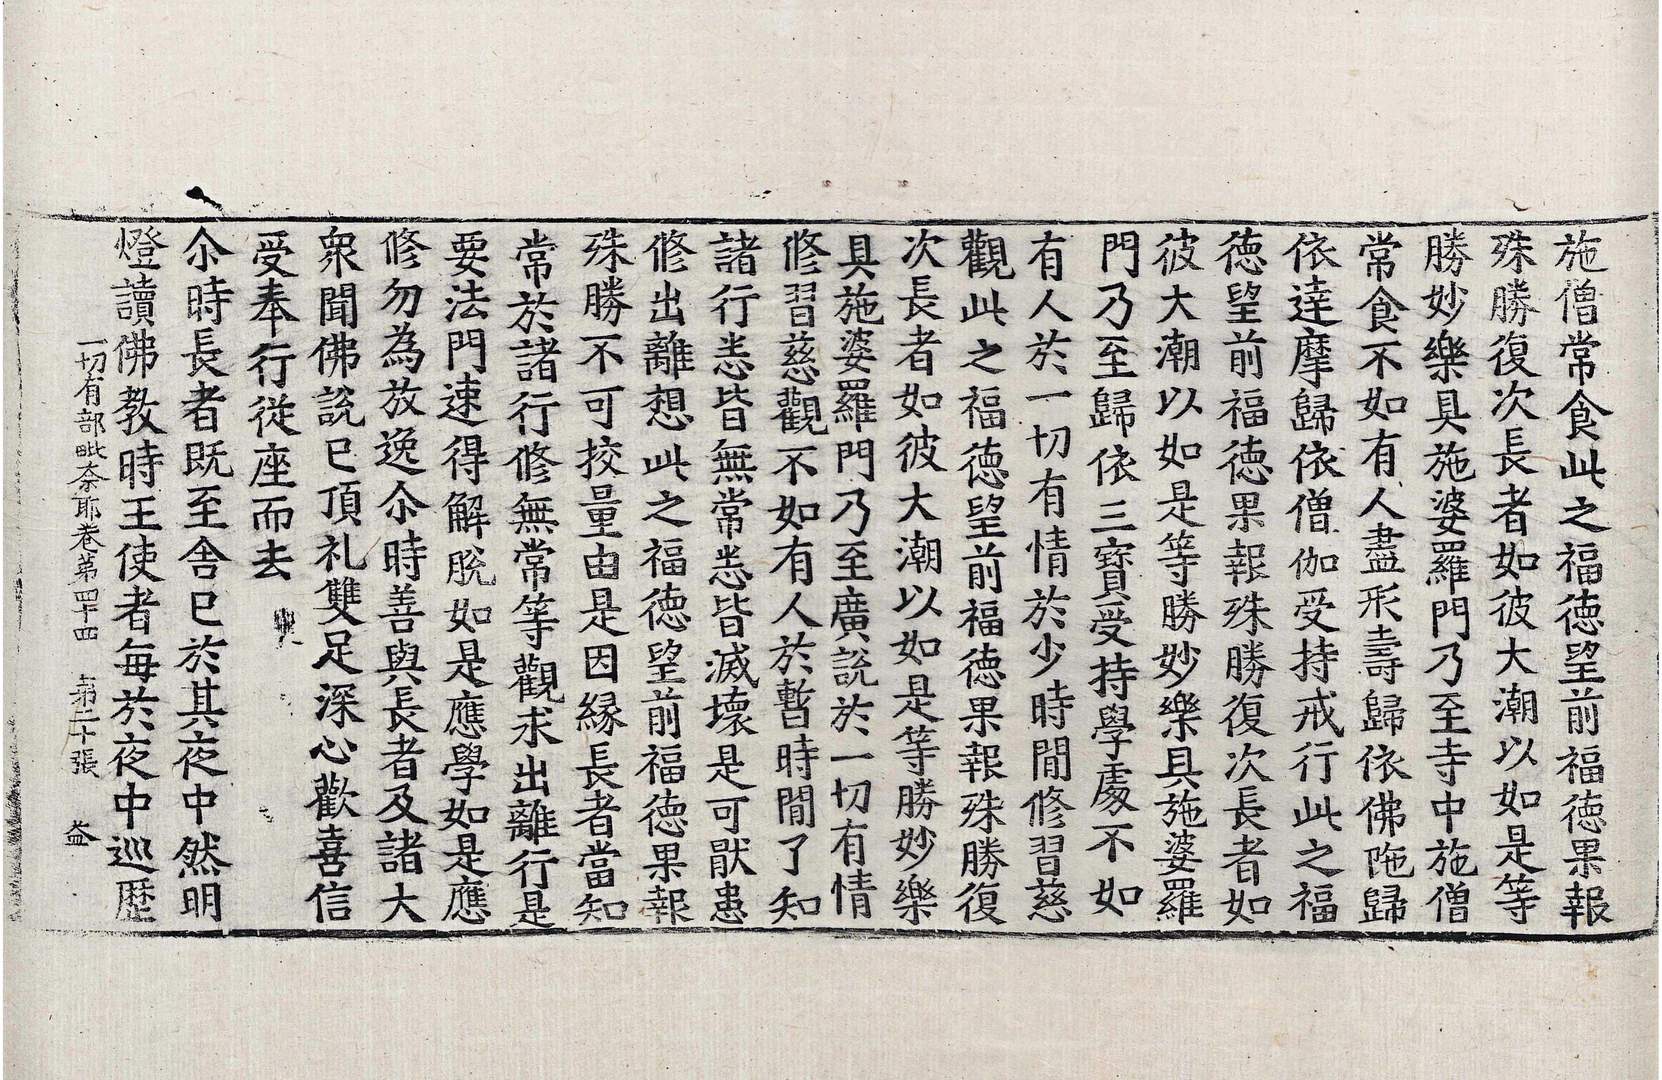 施僧常食此之福德望前福德果報
殊勝復次長者如彼大潮以如是等
勝妙樂具施婆羅門乃至寺中施僧
常食不如有人盡形壽歸依佛陁歸
依達摩歸依僧伽受持戒行此之福
德望前福德果報殊勝復次長者如
彼大潮以如是等勝妙樂具施婆羅
門乃至歸依三寶受持學處不如
有人於一切有情於少時間修習慈
觀此之福德望前福德果報殊勝復
次長者如彼大潮以如是等勝妙樂
具施婆羅門乃至廣說於一切有情
修習慈觀不如有人於暫時間了知
諸行悉皆無常悉皆滅壞是可猒患
修出離想此之福德望前福德果報
殊勝不可挍量由是因緣長者當知
常於諸行修無常等觀求出離行是
要法門速得解脫如是應學如是應
修勿為放逸尒時善與長者及諸大
衆聞佛說已頂礼雙足深心歡喜信
受奉行從座而去
尒時長者既至舍已於其夜中然明
燈讀佛教時王使者每於夜中巡歷
一切有部毗奈耶卷第四十四 第二十張 益